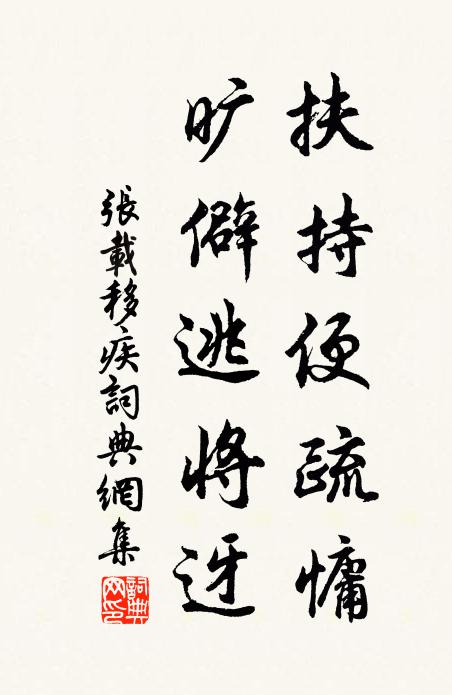 扶持便疏慵
旷僻逃将迓
張載移疾詞典網集
詞典网印